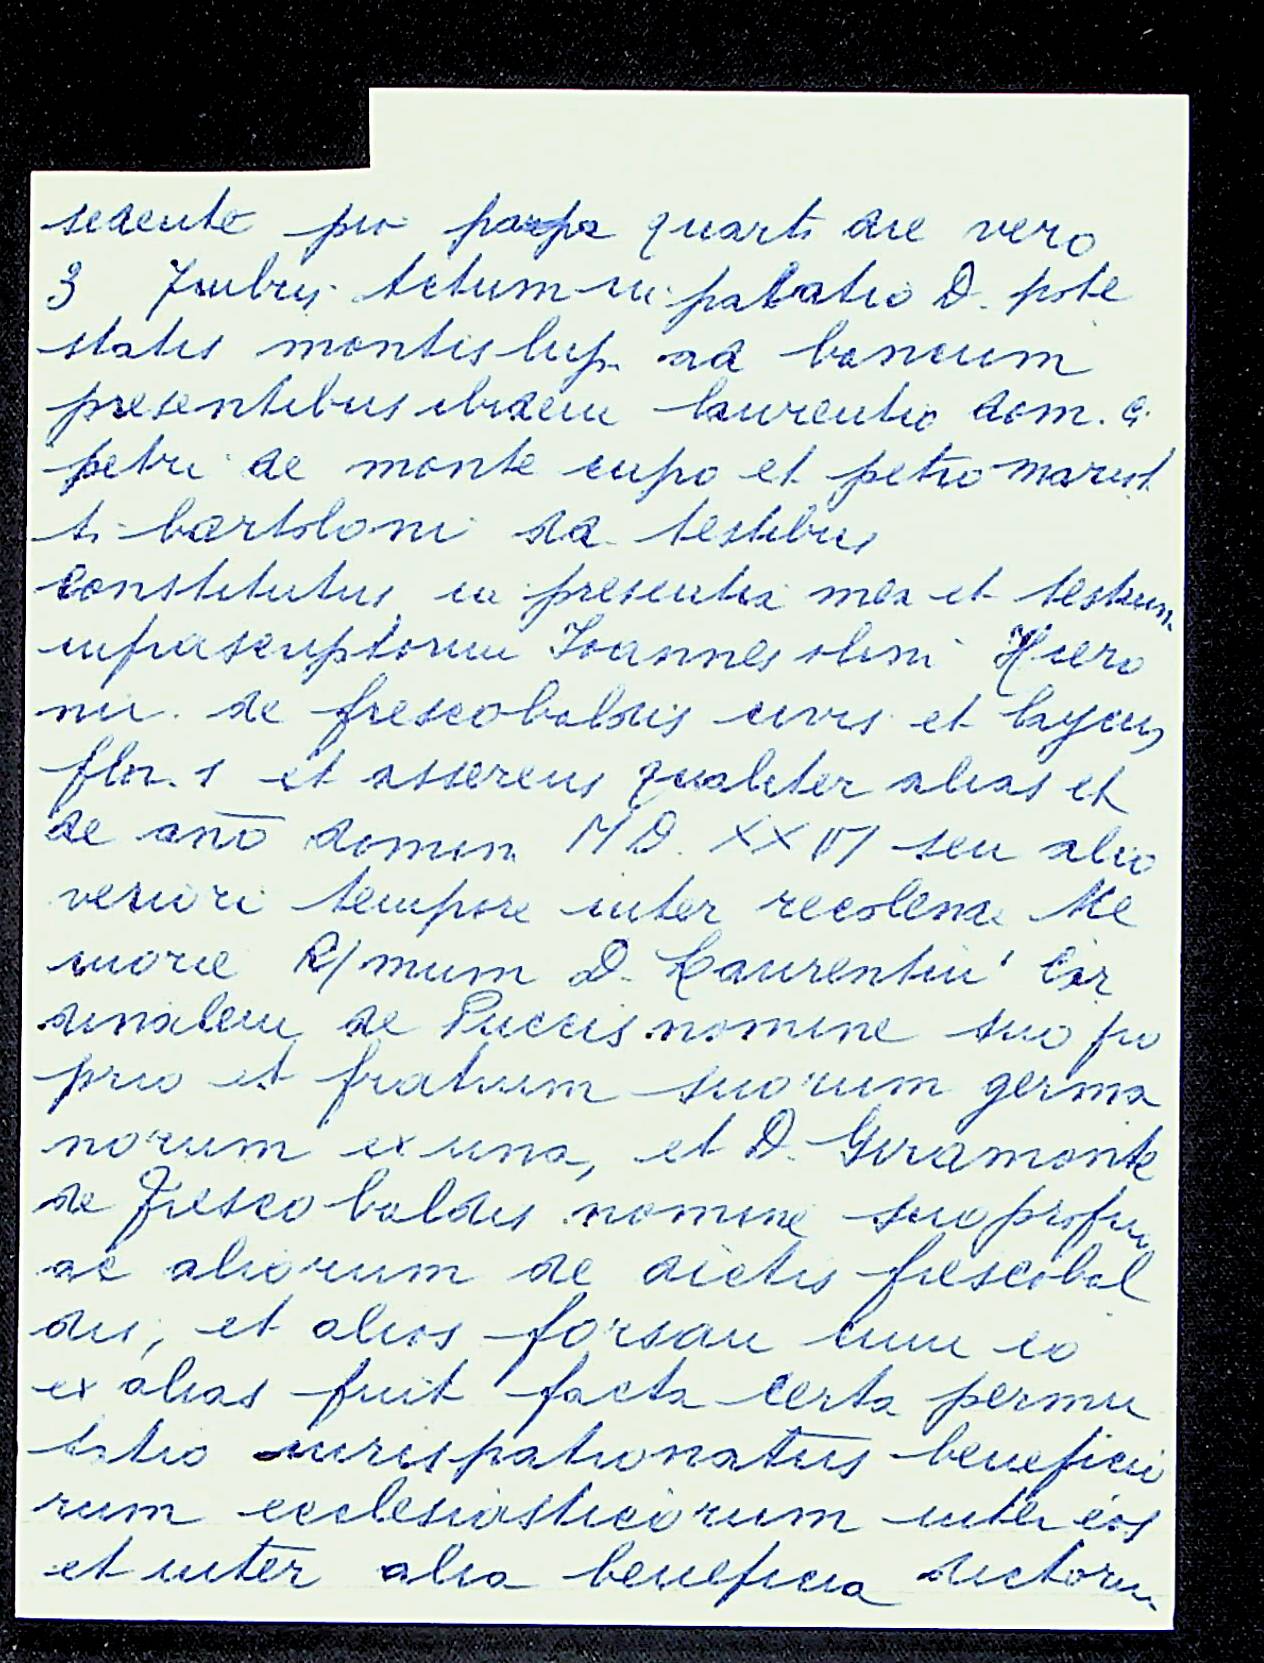 sedente pio papa quarti die vero
3 7mbris Actum in palatio D. pote
statis montis lup. ad bancum
presentibus ibidem laurentio dom. ci
petri de monte lupo et petro mariot
ti bartolomi dd testibus
Constitutus in presentia mea et testium
infrascriptorum Joannes olim Hiero
nii. de frescobaldis civis et laycus
flor. s et asserens qualiter alias et
de ano domini MD. XXVI seu alio
veriori tempore inter recolende Me
morie R/mum D. Laurentiu' Car
dinalem de Puccis nomine suo pro
prio et fratrum suorum germa
norum ex una, et D. Guramonte
de Frescobaldis nomine suo proprio
ac aliorum de dictis frescobal
dis, et alios forsan cum eo
ex alias fuit facta certa permu
tatio iurispatronatus beneficio
rum ecclesiasticorum inter eos
et inter alia beneficia dictorum